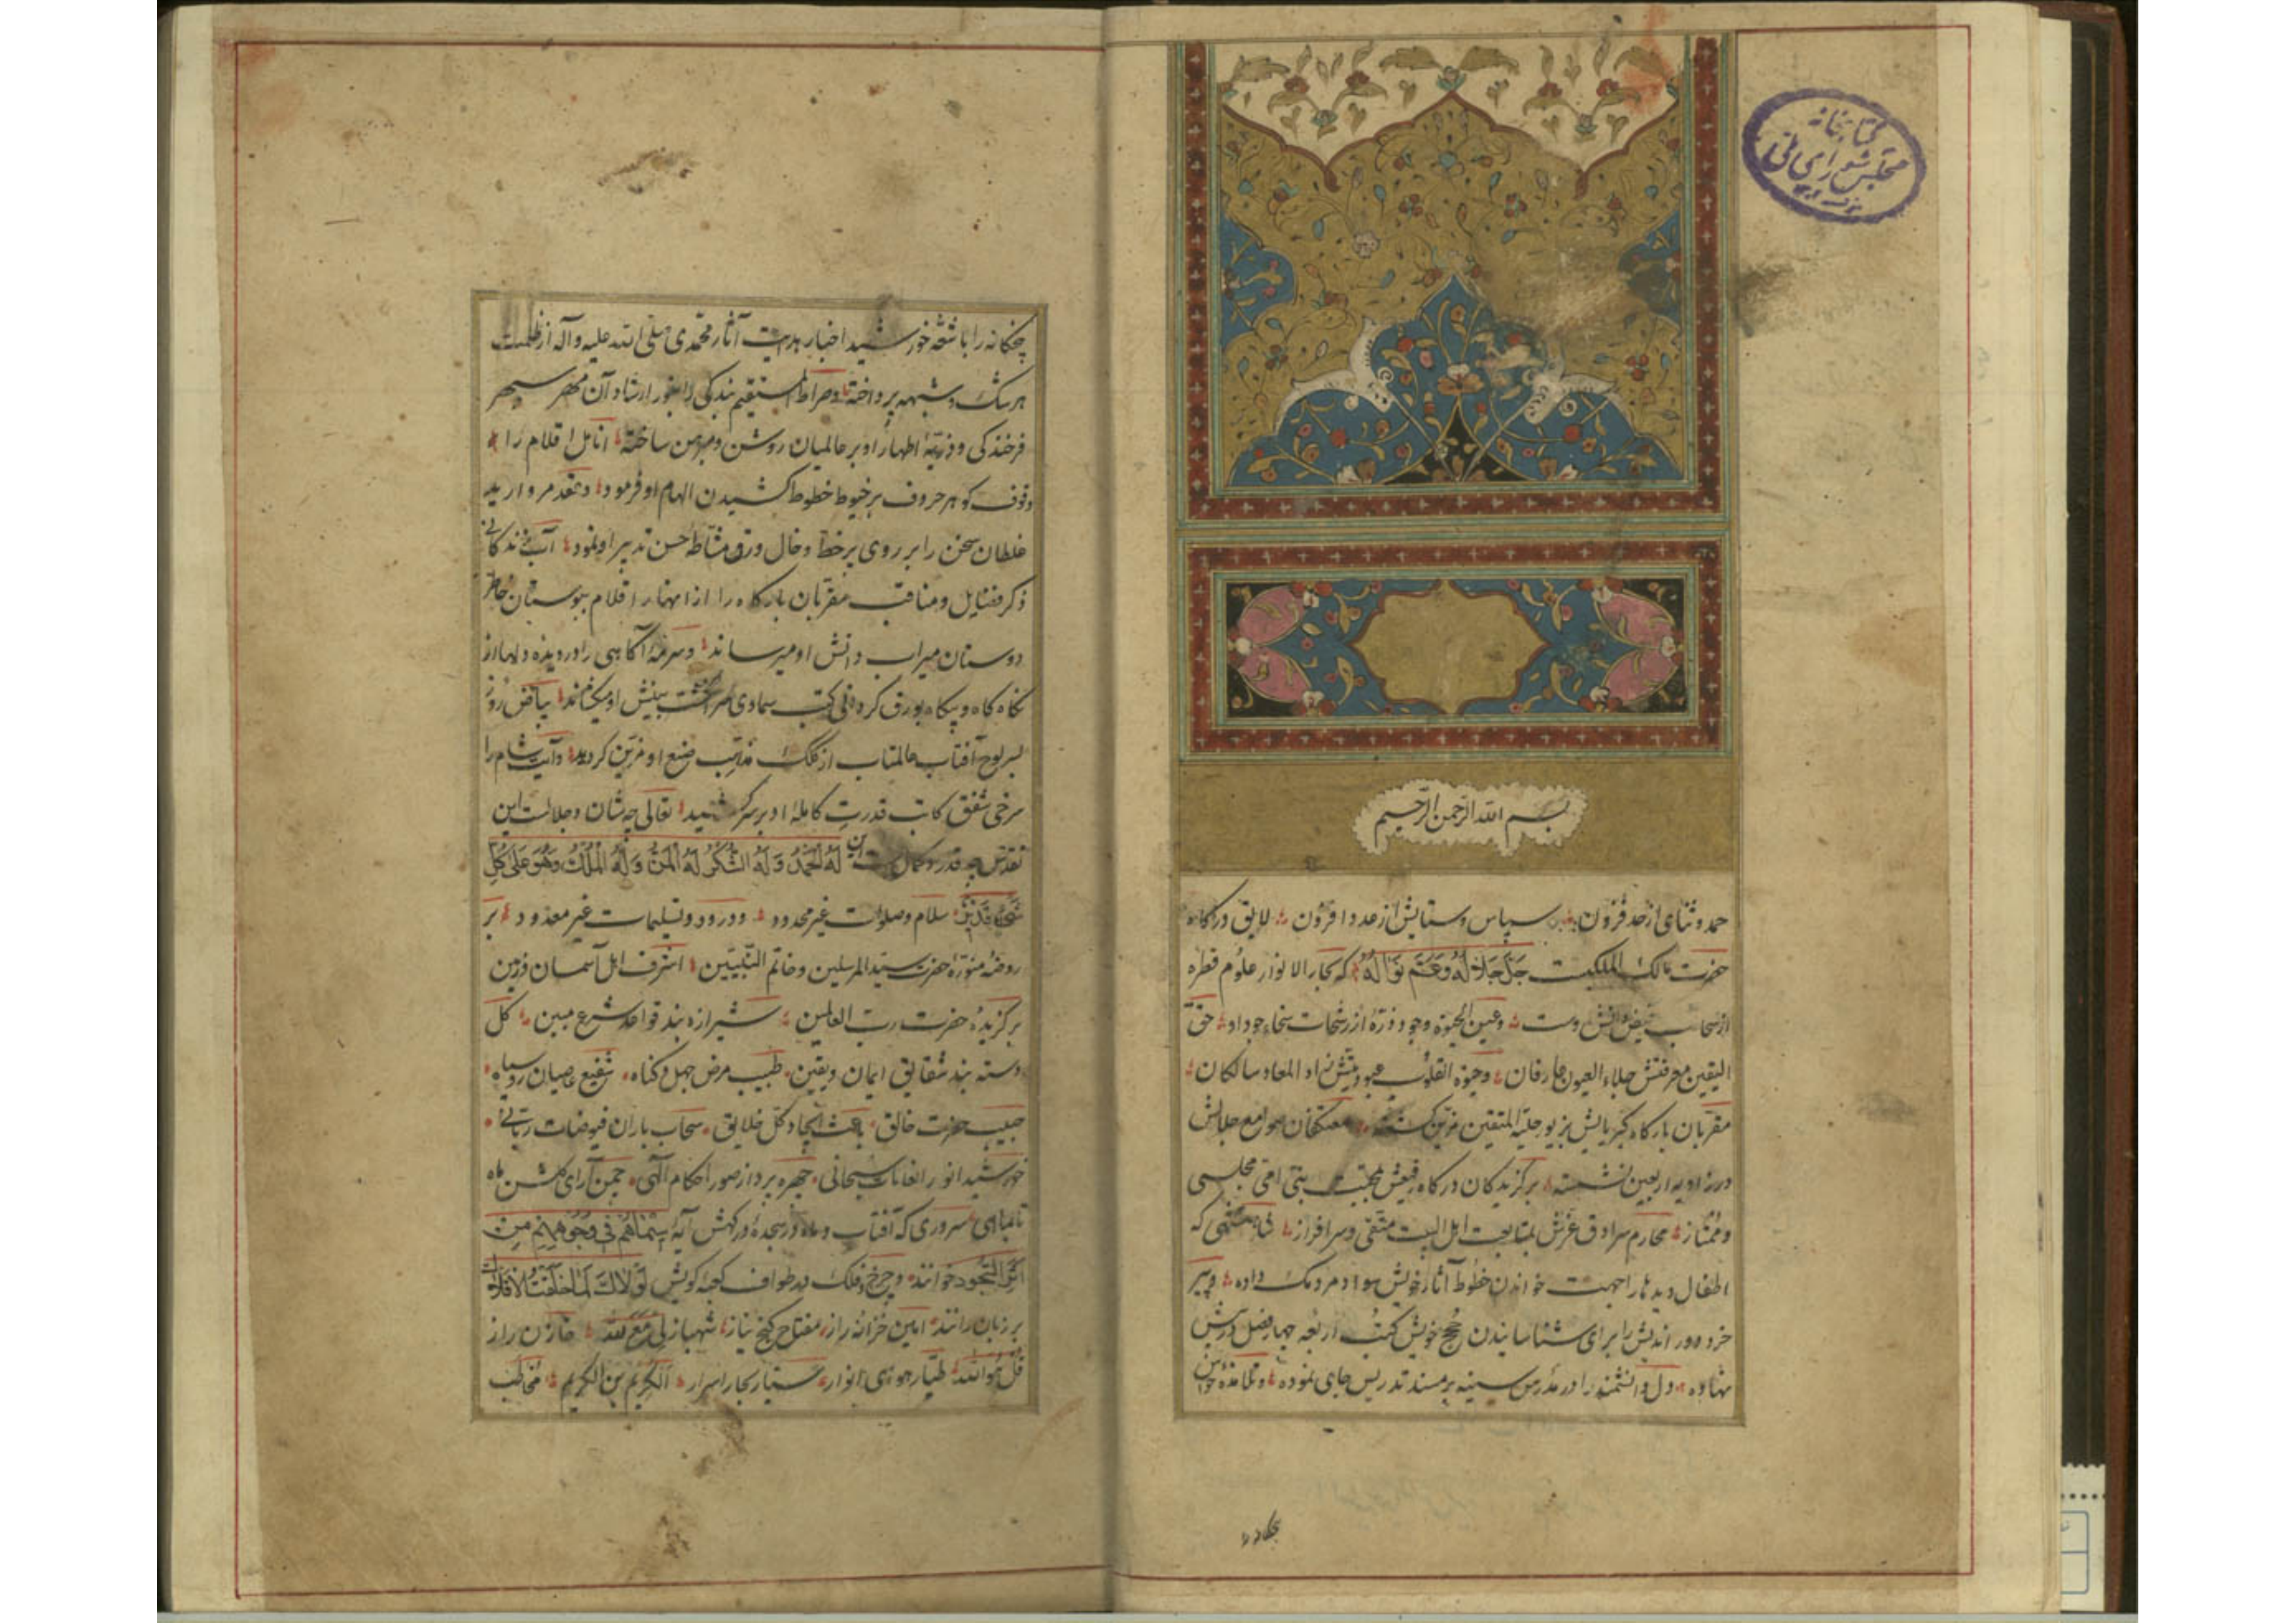 کتابخانه
مجلس شورای ملی
بسم الله الرحمن الرحیم
حمد و ثنای از حد فزون سپاس و ستایش از عدد افزون لایق درکاه
حضرت مالک الملکیست جَلَّ جَلَالُهُ وَعَمَّ نَوَالُهُ که بحار الانوار علوم قطرهٔ
از سحاب دانش اوست و عین الحیوة وجود ذرهٔ از رشحات سخاء جود او حق
الیقین معرفتش جلاء العیون عارفان و حیوة القلوب عبودیتش زاد المعاد سالکان
مقربان بارکاه کبریایش بزیور حلیة المتقین مزین کشته معتکفان صوامع جلالش
در زاویه اربعین نشسته برکزیدکان درکاه رفیعش بمحبت بنی امی مجلسی
و ممتاز محارم سرادق عزش بمتابعت اهل البیت متقی و سرافراز که
اطفال دیدها را جهت خواندن خطوط آثار خویش سواد مردمک داده و پیر
خرد دور اندیش را برای شناسانیدن حُجج خویش کتب اربعه چهار فصل درپیش
نهاده دل دانشمند را در مدرس سینه بر مسند تدریس جای نموده و تلامذه حواس
پنجکانه را با شعّهٔ خورشید اخبار هدایت آثار محمدی صلی الله علیه و آله از ظلمت
هر شک و شبهه پرداخته و صراط المستقیم بندکی را بنور ارشاد آن مهر سپهر
فرخندکی و ذریّهٔ اطهار او بر عالمیان روشن و مبرهن ساخته انامل اقلام را
وقوف کوهر حروف بر خیوط خطوط کشیدن الهام او فرمود و عقد مروارید
غلطان سخن را بر روی پر خط و خال ورق مشاطهٔ حسن تدبیر او نمود آب زندکانی
ذکر فضایل و مناقب مقربان بارکاه را از انهار اقلام ببوستان خاطر
دوستان میراب دانش او میرساند و سرمهٔ آکاهی را در دیده دلها از
نکاه کاه و بیکاه بورق کردانی کتب سماوی بینش او میکشاند بیاض روز
بسر لوح آفتاب عالمتاب از کلک مذهب صنع او مزین کردید و آیت شام را
سرخی شفق کاتب قدرت کامله او بر سر کشید تعالی چه شان و جلالست این
تقدس چه قدر و کمال است این لَهُ الْحَمْدُ وَلَهُ الشُّكْرُ لَهُ الْمَنُّ وَلَهُ الْمُلْكُ وَهُوَ عَلَى كُلِّ
شَيْءٍ قَدِيرٌ سلام و صلوات غیر محدود و درود و تسلیمات غیر معدود بر
روضهٔ منورهٔ حضرت سید المرسلین و خاتم النبیین اشرف اهل آسمان و زمین
برکزیدهٔ حضرت رب العالمین شیرازه بند قواعد شرع مبین کل
دسته بند شقایق ایمان و یقین طبیب مرض جهل و کناه شفیع عاصیان روسیاه
حبیب حضرت خالق باعث ایجاد کل خلایق سحاب باران فیوضات ربانی
خورشید انوار افاضات سبحانی چهره پرداز صور احکام آلهی چمن آرای کلشن ماه
تا بماهی سروری که آفتاب و ماه در سجدهٔ درکهش آیهٔ سِيمَاهُمْ فِي وُجُوهِهِمْ مِنْ
أَثَرِ السُّجُودِ خوانند و چرخ و فلک در طواف کعبه کویش لَوْلَاكَ لَمَا خَلَقْتُ الْأَفْلَاكَ
بر زبان رانند امین خزانه راز مفتاح کنج نیاز شهباز لی مَعَ الله خازن راز
قُلْ هُوَ اللهُ طیّار هوای انوار سیّار بحار اسرار الکریم بن الکریم مخاطب